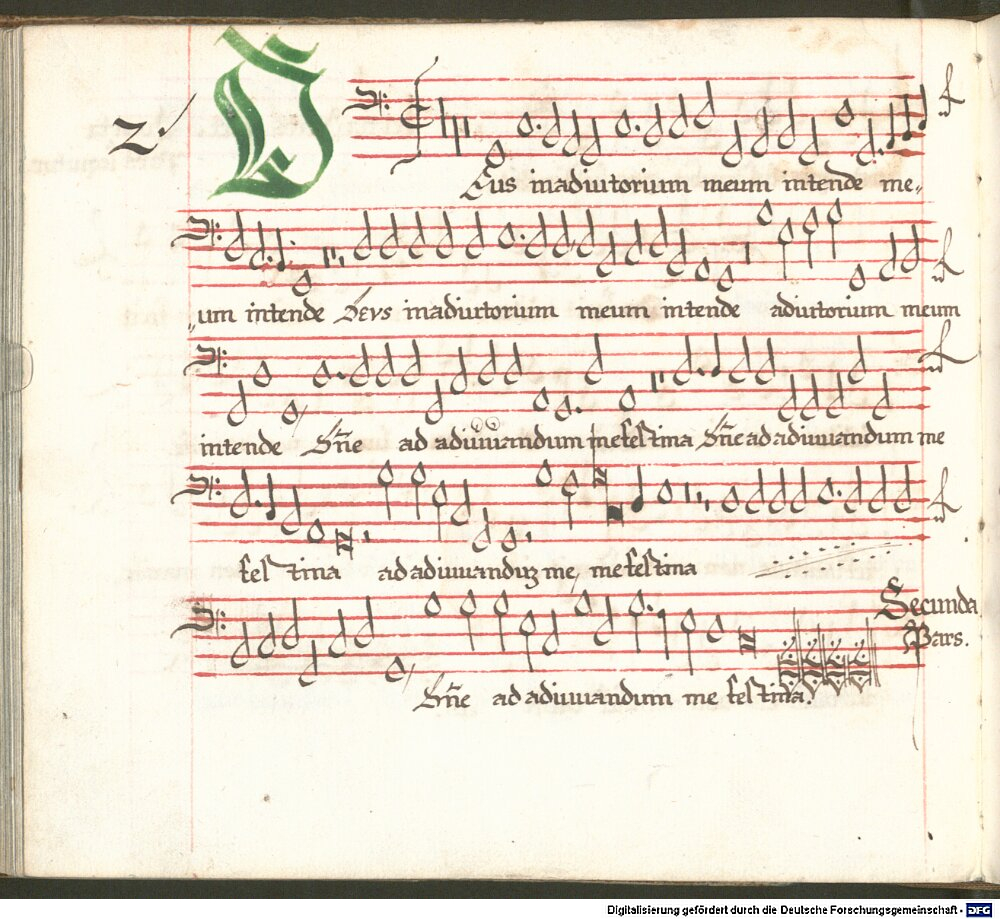 2
Deus in adiutorium meum intende me„
„um intende Deus in adiutorium meum intende adiutorium meum
intende Dñe ad adiuuandum me festina Dñe ad adiuuandum me
festina ad adiuuanduȝ me, me festina
Secunda
Pars.
Dñe ad adiuuandum me festina.
Digitalisierung gefördert durch die Deutsche Forschungsgemeinschaft - DFG